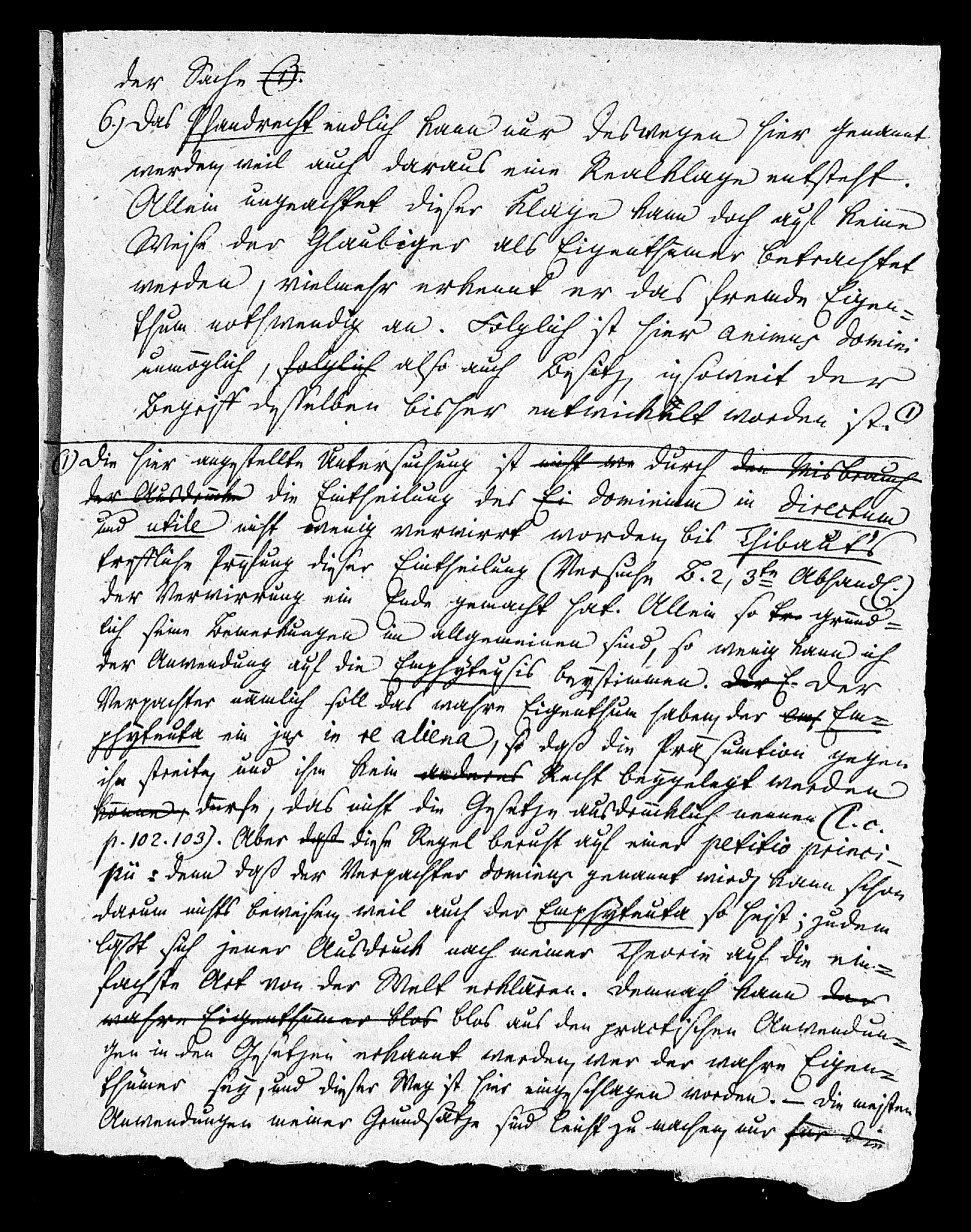 der Sache (1).
6.) Das Pfandrecht endlich kann nur deswegen hier genannt
werden, weil auch daraus eine Realklage entsteht.
Allein ungeachtet dieser Klage kann doch auf keine
Weise der Glaubiger als Eigenthumer betrachtet
werden, vielmehr erkennt er das fremde Eigen=
thum nothwendig an. Folglich ist hier animus domini
unmöglich, folglich also auch Besitz, insoweit der
Begriff desselben bisher entwickelt worden ist. (1)
(1) Die hier angestellte Untersuchung ist nicht we durch den Misbrauch
der Ausdrucke die Eintheilung des Ei dominium in directum
und utile nicht wenig verwirrt worden, bis Thibaut's
treffliche Prüfung dieser Eintheilung (Versuche B. 2, 3te Abhandl.)
der Verwirrung ein Ende gemacht hat. Allein so tre gründ=
lich seine Bemerkungen im allgemeinen sind, so wenig kann ich
der Anwendung auf die Emphyteusis beystimmen. Der E. Der
Verpachter nämlich soll das wahre Eigenthum haben, der Em=
phyteuta ein jus in re aliena, so daß die Präsumtion gegen
ihn streite, und ihm kein anderes Recht beygelegt werden
könne, dürfe, das nicht die Gesetze ausdrücklich nennen (l. c.
p. 102. 103). Aber daß diese Regel beruht auf einer petitio princi=
pii: denn daß der Verpachter dominus genannt wird, kann schon
darum nichts beweisen, weil auch der Emphyteuta so heist; zudem
läßt sich jener Ausdruck nach meiner Theorie auf die ein=
fachste Art von der Welt erklären. Demnach kann der
wahre Eigenthümer blos blos aus den practischen Anwendun=
gen in den Gesetzen erkannt werden, wer der wahre Eigen=
thümer sey, und dieser Weg ist hier eingeschlagen worden. — Die meisten
Anwendungen meiner Grundsätze sind leicht zu machen, nur für die